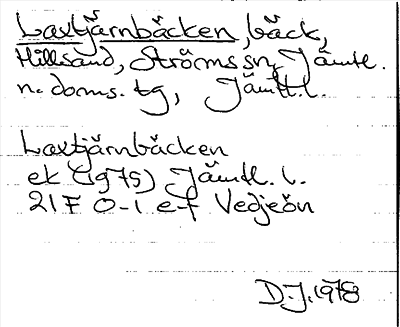 Laxtjärnbäcken, bäck,
Hillsand, Ströms sn, Jämtl.
n. doms. tg, Jämtl.l.
Laxtjärnbäcken
ek (1975) Jämtl. l.
21 F 0-1 e-f Vedjeön
D.J. 1978